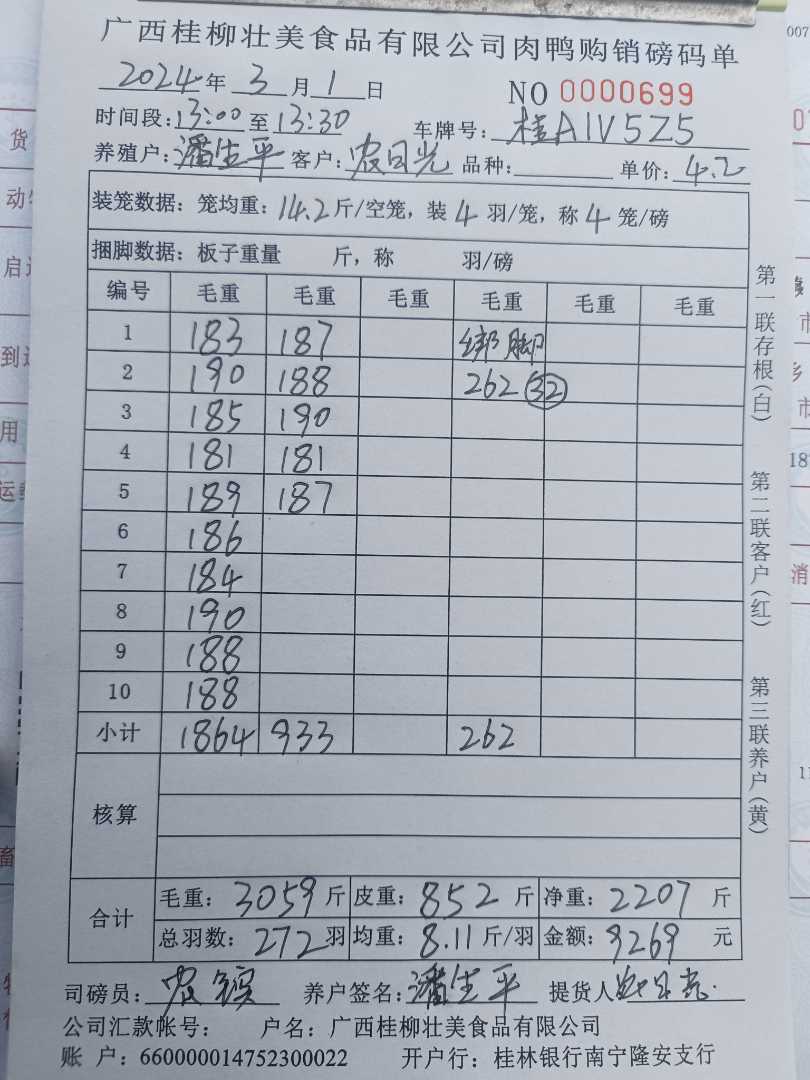 广西桂柳壮美食品有限公司肉鸭购销磅码单
2024年3月1日 NO 0000699
时间段:13:00至13:30 车牌号:桂A1V5Z5
养殖户:潘生平 客户:农日光 品种: 单价:4.2
装笼数据:笼均重:14.2斤/空笼,装4羽/笼,称4笼/磅
捆脚数据:板子重量 斤,称 羽/磅
编号 毛重 毛重 毛重 毛重 毛重 毛重
1 183 187 绑脚
2 190 188 262 32
3 185 190
4 181 181
5 189 187
6 186
7 184
8 190
9 188
10 188
小计 1864 933 262
核算
合计 毛重:3059斤 皮重:852斤 净重:2207斤
总羽数:272羽 均重:8.11斤/羽 金额:9269元
司磅员:农 养户签名:潘生平 提货人
公司汇款帐号: 户名:广西桂柳壮美食品有限公司
账户:660000014752300022 开户行:桂林银行南宁隆安支行
第一联存根(白)
第二联客户(红)
第三联养户(黄)